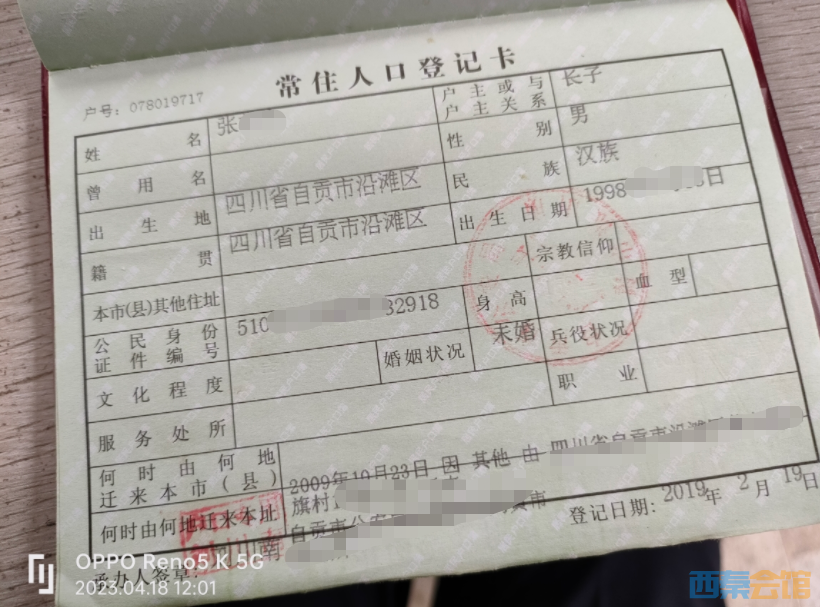 常住人口登记卡
户号：078019717
姓名 张 户主或与户主关系 长子
曾用名 性别 男
出生地 四川省自贡市沿滩区 民族 汉族
籍贯 四川省自贡市沿滩区 出生日期 1998 日
本市(县)其他住址 宗教信仰
公民身份证件编号 510 32918 身高 血型
文化程度 婚姻状况 未婚 兵役状况
服务处所 职业
何时由何地迁来本市(县) 2009年10月23日 因 其他 由 四川省自贡市沿滩区
何时由何地迁来本址 旗村
自贡市公安 市
承办人签章： 登记日期：2019年2月19日
OPPO Reno5 K 5G
2023.04.18 12:01
西秦会馆